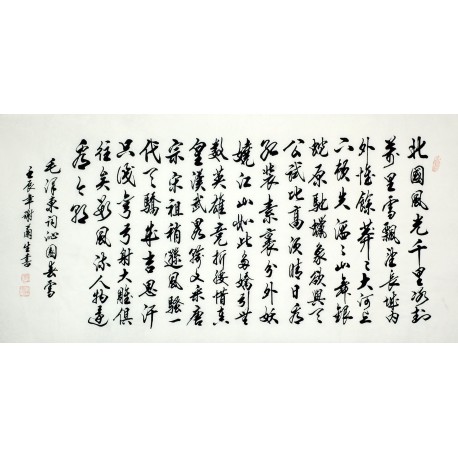 北國風光千里冰封
萬里雪飄望長城内
外惟餘莽々大河上
下頓失滔々山舞銀
蛇原馳蠟象欲與天
公試比高須晴日看
紅裝素裹分外妖
嬈江山如此多嬌引無
數英雄競折腰惜秦
皇漢武略輸文采唐
宗宋祖稍遜風騷一
代天驕成吉思汗
只識彎弓射大雕俱
往矣數風流人物還
看今朝
毛澤東詞沁園春雪
壬辰年謝生書